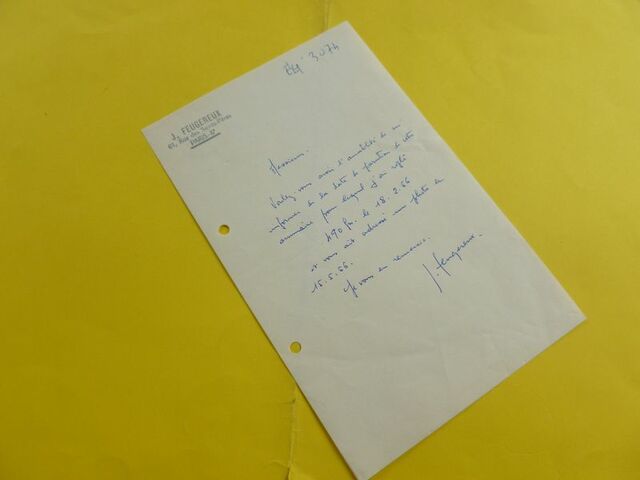 Réf. 3074
J. FEUGEREUX
Rue des
PARIS-17
Messieurs.
Voulez-vous avoir l'amabilité de m'
informer de la date de parution de votre
annuaire pour lequel j'ai réglé
490 frs. le 18.2.66
et vous ait adressé une photo le
15.5.66.
Je vous en remercie.
J. Feugereux.